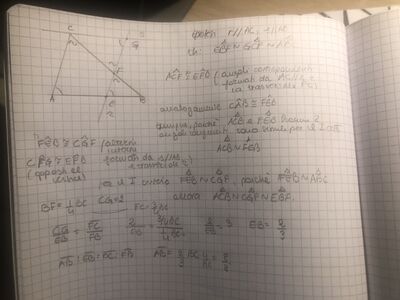 C
S
G
F
A
E
B
Ipotesi r//AC, s//AB
Th: EB̂F ~ GĈF ~ AB̂C
AĈF ≅ EF̂B (angoli corrispondenti
formati da AC//r e
la trasversale FC)
analogamente CÂB ≅ FÊB
dunque, poiché ACB e FEB hanno 2
angoli congruenti, sono simili per il I crit
ACB ~ FEB
FÊB ≅ CĜF (alterni
interni
formati da s//AB
e trasversale r)
CF̂G ≅ EF̂B
(opposti al
vertice)
Per il I criterio FEB ~ CGF, poiché FEB ~ ABC
allora ACB ~ CGF ~ EBF
BF = 1/4 BC CG=2 FC = 3/4 BC
CG/EB = FC/FB 2/EB = 3/4 BC / 1/4 BC 2/EB = 3 EB = 2/3
AB : EB = BC : FB AB = 2/3 BC 4/BC = 8/3